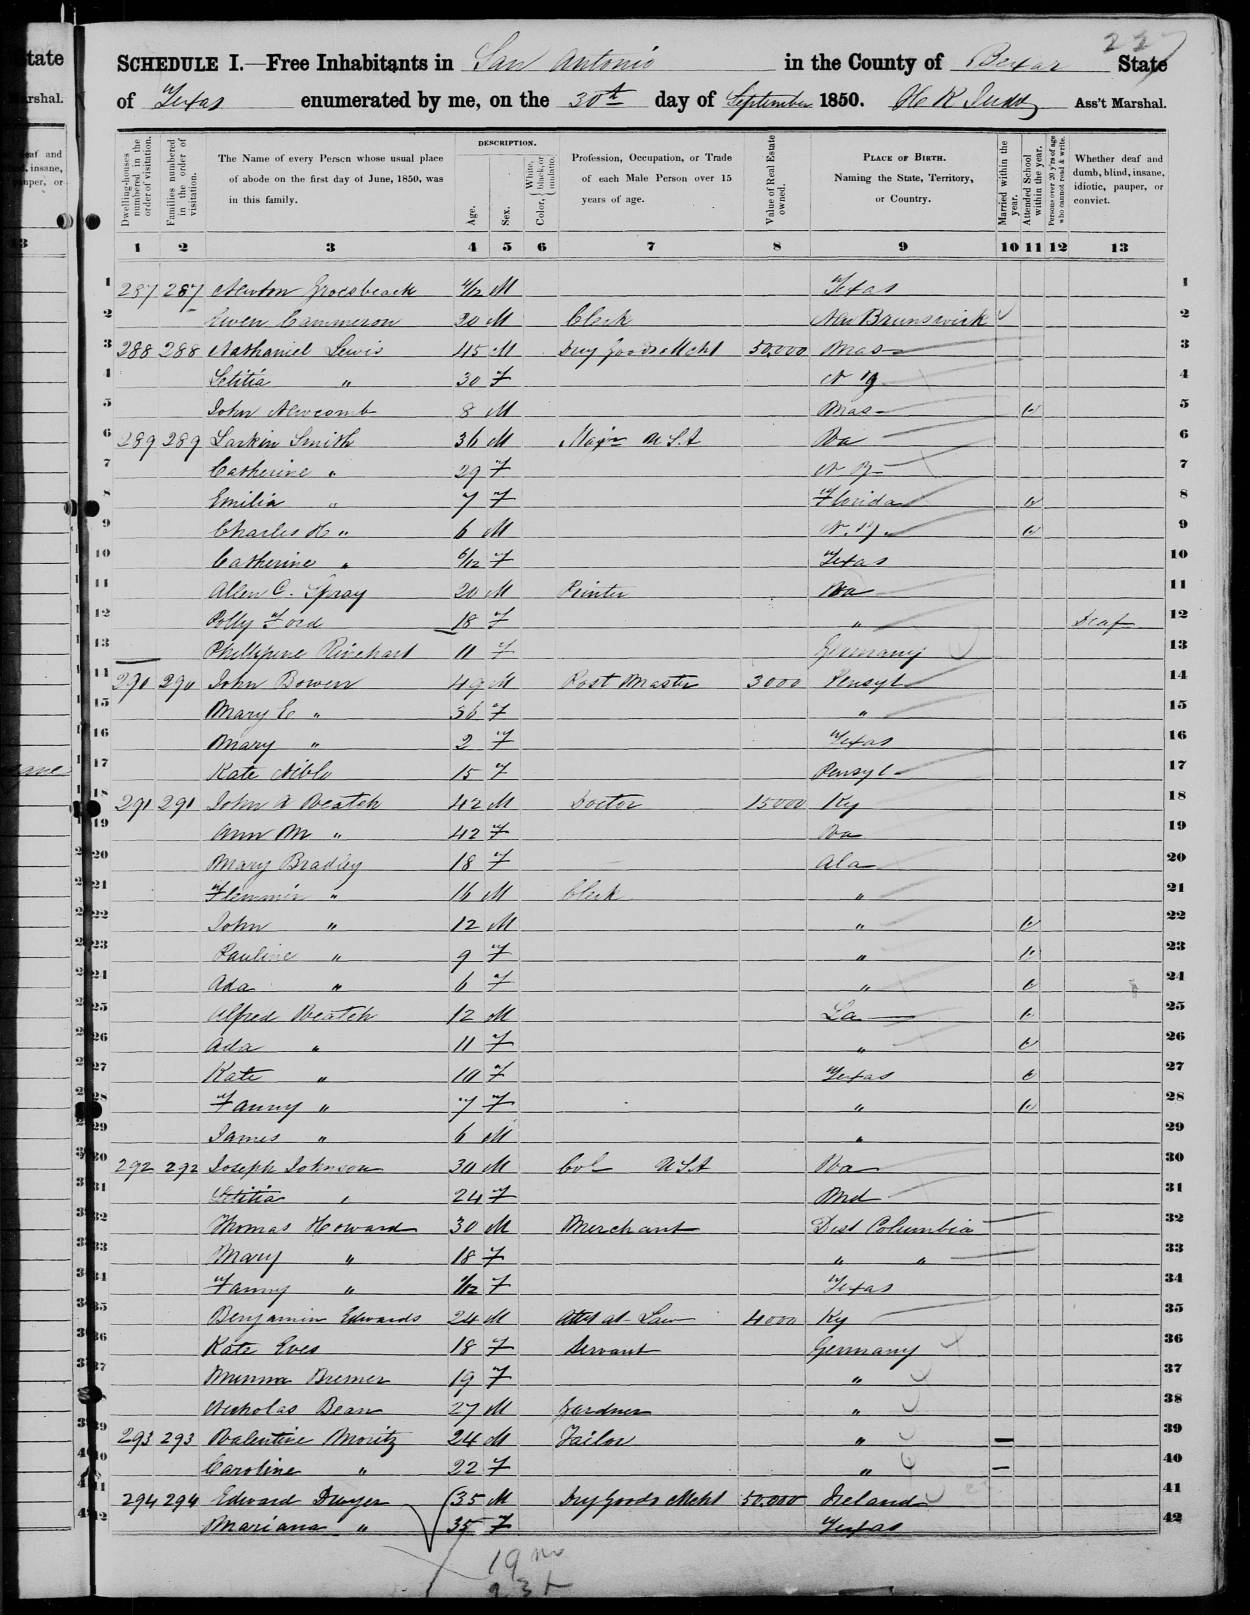 227
SCHEDULE I.—Free Inhabitants in San Antonio in the County of Bexar State
of Texas enumerated by me, on the 30th day of September 1850. H K Judd Ass't Marshal.
Dwelling-houses numbered in the order of visitation. Families numbered in the order of visitation. The Name of every Person whose usual place of abode on the first day of June, 1850, was in this family. DESCRIPTION. Age. Sex. Color, White, black, or mulatto. Profession, Occupation, or Trade of each Male Person over 15 years of age. Value of Real Estate owned. PLACE OF BIRTH. Naming the State, Territory, or Country. Married within the year. Attended School within the year. Persons over 20 y'rs of age who cannot read & write. Whether deaf and dumb, blind, insane, idiotic, pauper, or convict.
1 2 3 4 5 6 7 8 9 10 11 12 13
1 287 287 Newton Groesbeack M Texas 1
2 Ewen Cammeron 20 M Clerk New Brunswick 2
3 288 288 Nathaniel Lewis 45 M Dry Goods Mcht 50,000 Mas 3
4 Letitia " 30 F 4
5 John Newcomb 8 M Mas 5
6 289 289 Larkin Smith 36 M Majr U.S.A Va 6
7 Catherine " 29 F 7
8 Emilia " 7 F Florida 8
9 Charles H " 6 M N.Y. 9
10 Catherine " 6/12 F Texas 10
11 Allen C. Spray 20 M Printer Va 11
12 Polly Ford 18 F " Deaf 12
13 Phillipene Rinehart 11 F Germany 13
14 290 290 John Bowen 49 M Post Master 3000 Pensyl 14
15 Mary E " 36 F " 15
16 Mary " 2 F Texas 16
17 Kate Niblo 15 F Pensyl 17
18 291 291 John A Veatch 42 M Doctor 15000 Ky 18
19 Ann M " 42 F Va 19
20 Mary Bradley 18 F Ala 20
21 Flemmin " 16 M Clerk " 21
22 John " 12 M " 22
23 Pauline " 9 F " 23
24 Ada " 6 F " 24
25 Alfred Veatch 12 M La 25
26 Ada " 11 F " 26
27 Kate " 10 F Texas 27
28 Fanny " 7 F " 28
29 James " 6 M " 29
30 292 292 Joseph Johnson 30 M Col USA Va 30
31 Letitia " 24 F Md 31
32 Thomas Howard 30 M Merchant Dist Columbia 32
33 Mary " 18 F " " 33
34 Fanny " F Texas 34
35 Benjamin Edwards 24 M Atty at Law 4000 Ky 35
36 Kate Eves 18 F Servant Germany 36
37 Minna Bremer 19 F " 37
38 Nicholas Bean 27 M Gardner " 38
39 293 293 Valentine Moritz 24 M Tailor " 39
40 Caroline " 22 F " 40
41 294 294 Edward Dwyer 35 M Dry Goods Mcht 50,000 Ireland 41
42 Mariana " 35 F Texas 42
19 m
23 f